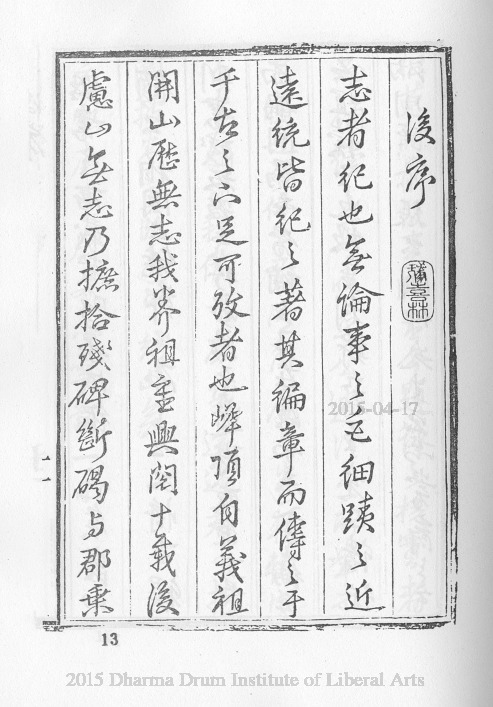 後序
志者紀也無論事之巨細蹟之近
遠統皆紀之著其編章而傳之于
千古之下足可攷者也嶧頂自義祖
開山歷無志我券祖重興閱十載後
慮山無志乃摭拾殘碑斷碣与郡乘
十一
13
2015-04-17
2015 Dharma Drum Institute of Liberal Arts